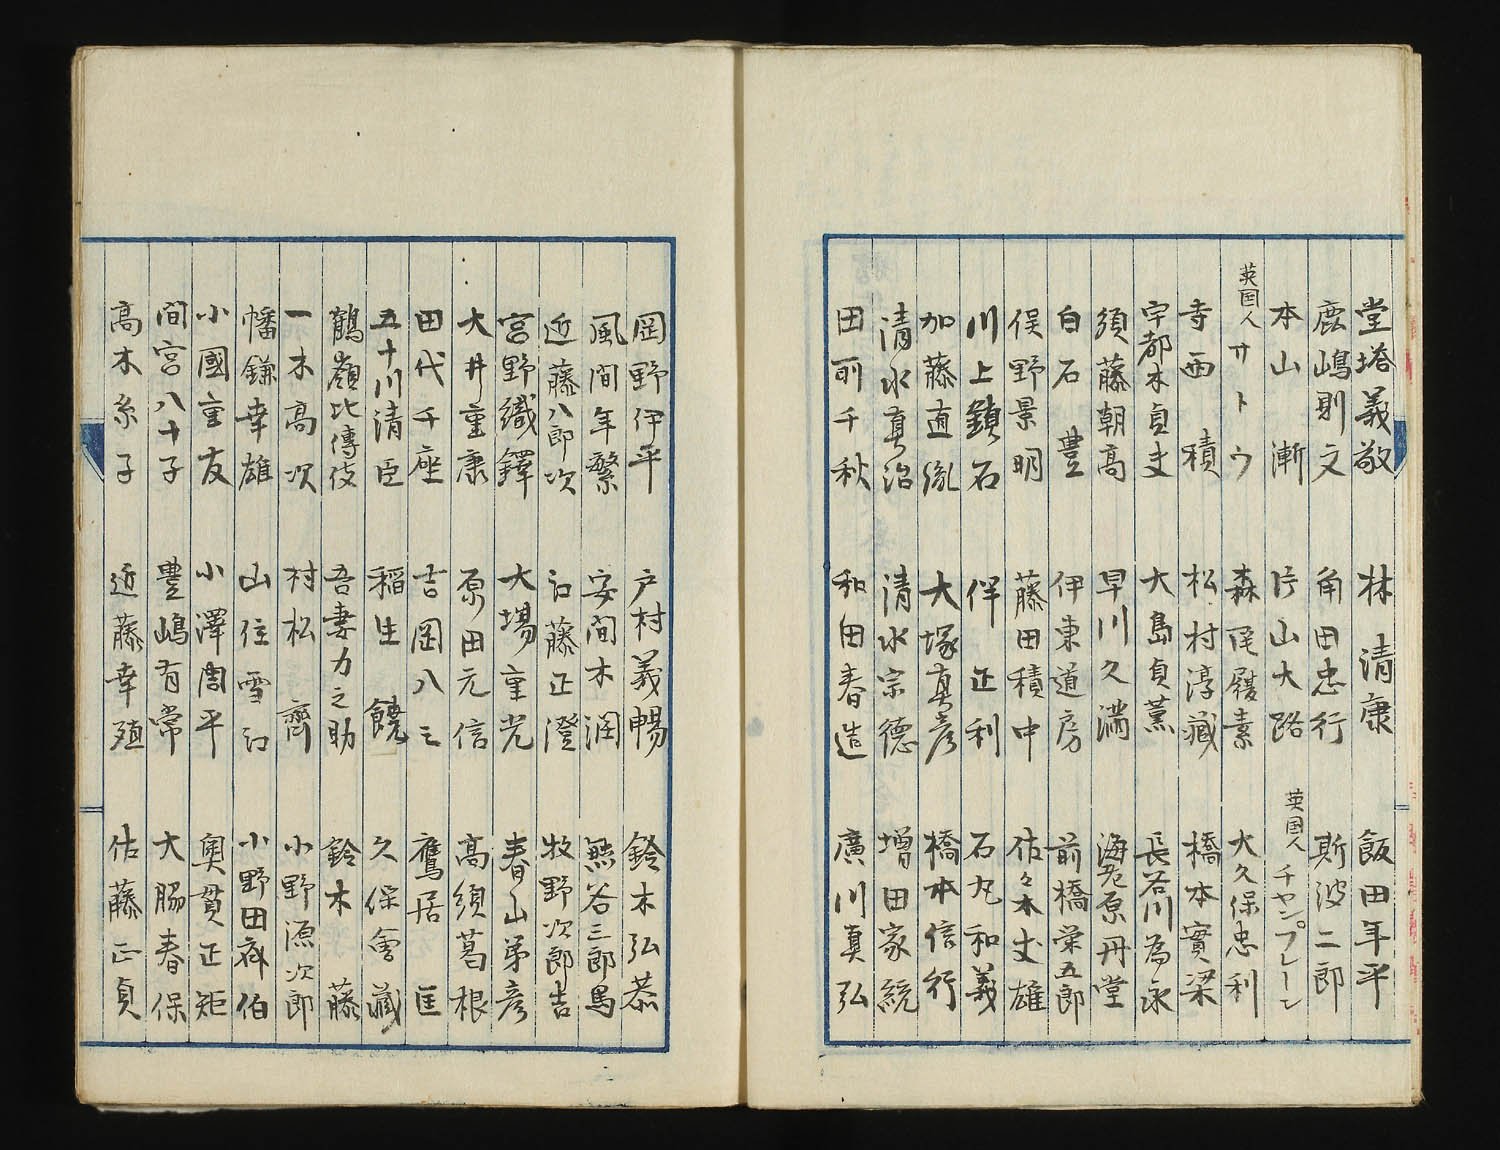 堂塔義敬 林清康 飯田年平
鹿嶋則文 角田忠行 斯波二郎
本山漸 片山大路 英国人チヤンブレーン
英国人サトウ 森尾履素 大久保忠利
寺西積 松村淳蔵 橋本實梁
宇都木貞丈 大島貞薫 長谷川為永
須藤朝高 早川久満 海老原丹堂
白石豊 伊東道房 前橋栄五郎
俣野景明 藤田積中 佐々木丈雄
川上鎮石 伴正利 石丸和義
加藤直胤 大塚真彦 橋本信行
清水真治 清水宗德 増田家統
田所千秋 和田春造 廣川真弘
岡野伊平 戸村義暢 鈴木弘恭
風間年繁 安間木潤 熊谷三郎馬
近藤八郎次 江藤正澄 牧野次郎吉
宮野織鐸 大場重光 春山弟彦
大井重康 原田元信 高須葛根
田代千座 吉岡八三 鷹居匡
五十川清臣 稲生饒 久保會蔵
鶴嶺比傳伎 吾妻力之助 鈴木藤
一木高次 村松齊 小野源次郎
幡鎌幸雄 山住雪江 小野田 伯
小國重友 小澤周平 奥貫正矩
間宮八十子 豊嶋有常 大脇春保
高木糸子 近藤幸殖 佐藤正貞